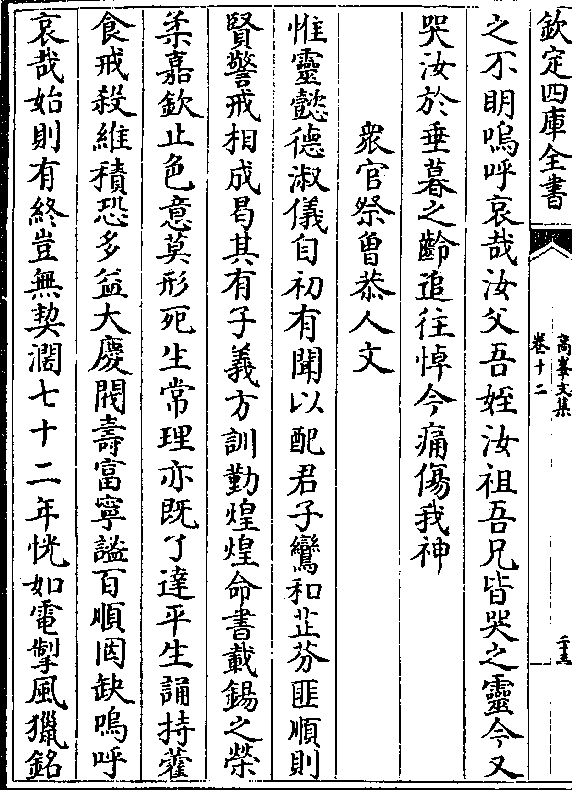 欽定四庫全書
高峯文集
卷十二
二十五
之不明嗚呼哀哉汝父吾姪汝祖吾兄皆哭之靈今又
哭汝於垂暮之齡追往悼今痛傷我神
衆官祭曾恭人文
惟靈懿德淑儀自初有聞以配君子鸞和芷芬匪順則
賢警戒相成曷其有子義方訓勤煌煌命書載錫之榮
柔嘉欽止色意莫形死生常理亦既了達平生誦持藿
食戒殺維積恐多益大慶閥壽富寧謐百順罔缺嗚呼
哀哉始則有終豈無契濶七十二年恍如電掣風獵銘